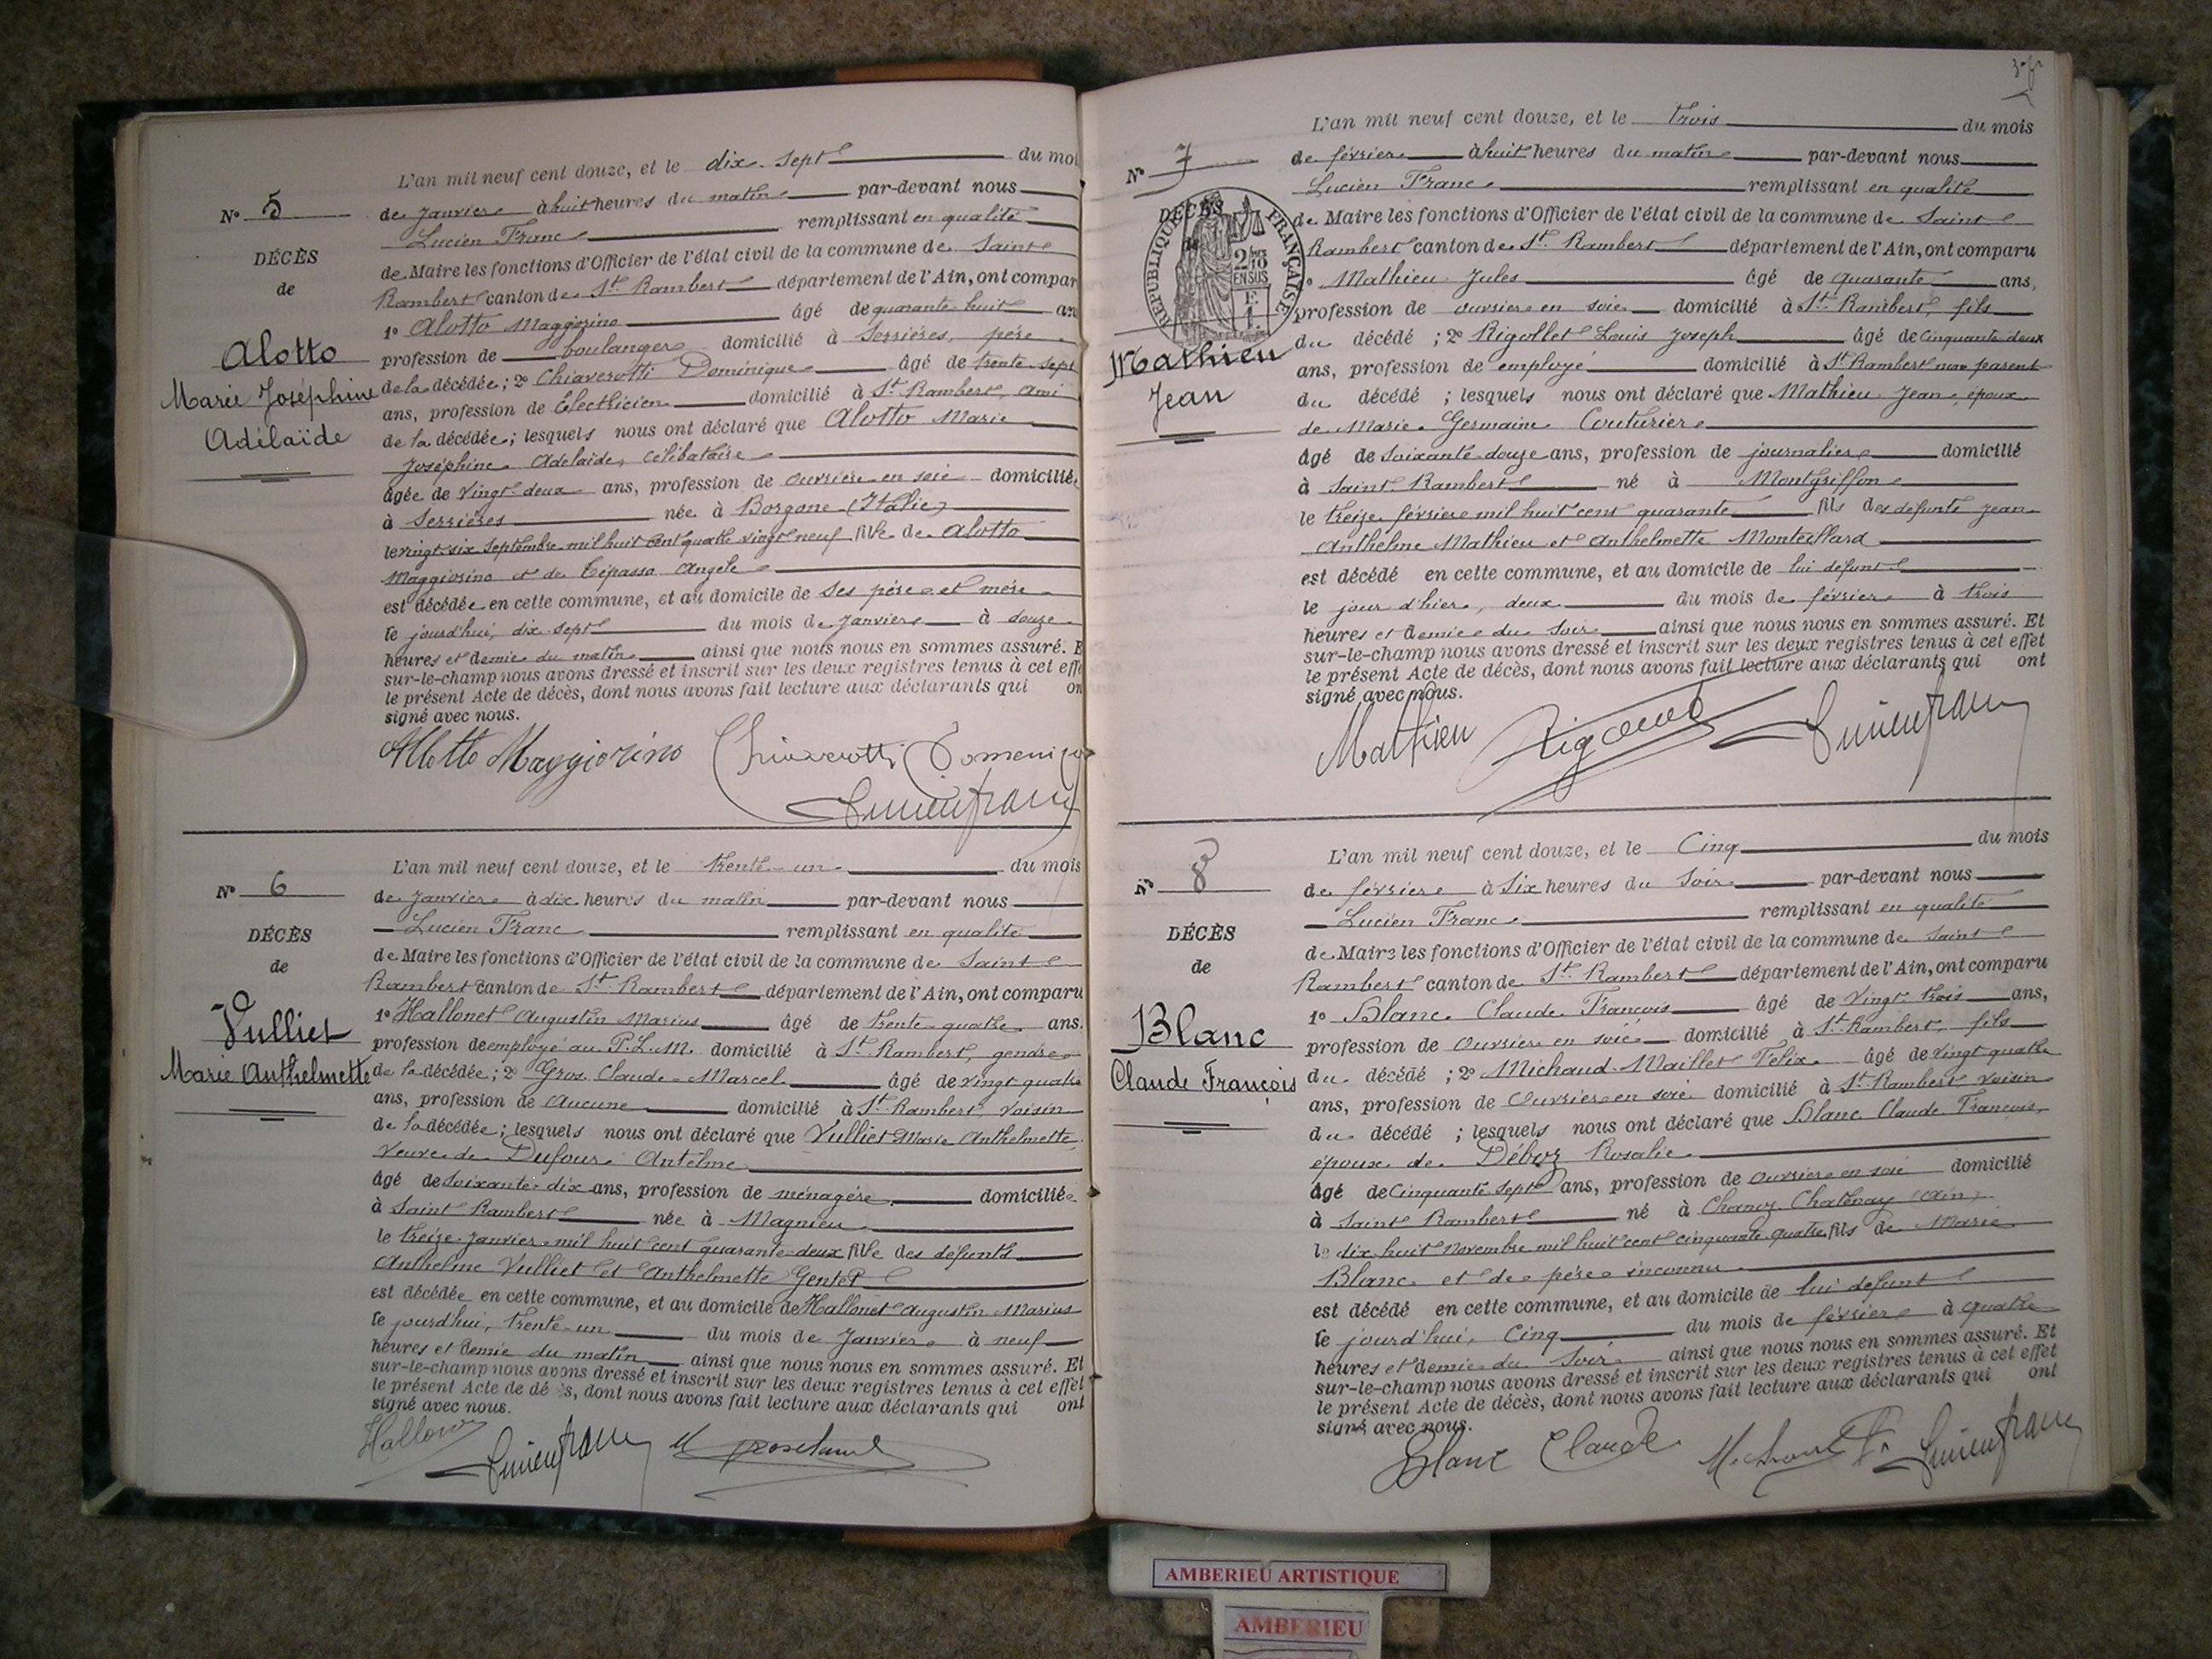 L'an mil neuf cent douze, et le dix-sept du moi
Nº 5
de Janvier à huit heures du matin par-devant nous
Lucien Franc remplissant en qualité
DÉCÈS
de Maire les fonctions d'Officier de l'état civil de la commune de Saint
de
Rambert canton de St. Rambert département de l'Ain, ont compar
1º Alotto Maggiorino âgé de quarante huit an
Alotto
profession de boulanger domicilié à Serrières, père
Marie Joséphine
de la décédée; 2º Chiaverotti Dominique âgé de trente-sept
ans, profession de Électricien domicilié à St. Rambert, ami
Adélaïde
de la décédée; lesquels nous ont déclaré que Alotto Marie
Joséphine Adelaïde, célibataire
âgée de vingt-deux ans, profession de ouvrière en soie domiciliée
à Serrières née à Borgone (Italie)
le vingt-six Septembre mil huit cent quatre vingt neuf fille de Alotto
Maggiorino et de Tépassa Angèle
est décédée en cette commune, et au domicile de ses père et mère
le jourd'hui, dix-sept du mois de Janvier à douze
heures et demie du matin ainsi que nous nous en sommes assuré. E
sur-le-champ nous avons dressé et inscrit sur les deux registres tenus à cet effe
le présent Acte de décès, dont nous avons fait lecture aux déclarants qui on
signé avec nous.
Allotto Maggiorino Chiaverotti Domenico
Lucien Franc
L'an mil neuf cent douze, et le trente-un du mois
Nº 6
de Janvier à dix heures du matin par-devant nous
Lucien Franc remplissant en qualité
DÉCÈS
de Maire les fonctions d'Officier de l'état civil de la commune de Saint
de
Rambert canton de St. Rambert département de l'Ain, ont comparu
1º Hallonet Augustin Marius âgé de trente-quatre ans.
Vulliet
profession de employé au P.L.M. domicilié à St. Rambert, gendre
Marie Anthelmette
de la décédée; 2º Gros Claude-Marcel âgé de vingt quatre
ans, profession de Aucune domicilié à St. Rambert, voisin
de la décédée; lesquels nous ont déclaré que Vulliet Marie Anthelmette,
veuve de Dufour Antelme
âgé de soixante-dix ans, profession de ménagère domiciliée
à Saint Rambert née à Magnieu
le treize Janvier mil huit cent quarante-deux fille des défunts
Anthelme Vulliet et Anthelmette Gentet
est décédée en cette commune, et au domicile de Hallonet Augustin Marius
le jourdhui, trente-un du mois de Janvier à neuf
heures et demie du matin ainsi que nous nous en sommes assuré. Et
sur-le-champ nous avons dressé et inscrit sur les deux registres tenus à cet effet
le présent Acte de dé s, dont nous avons fait lecture aux déclarants qui ont
signé avec nous.
Hallonet Lucien Franc
L'an mil neuf cent douze, et le trois du mois
Nº 7
de février à huit heures du matin par-devant nous
Lucien Franc remplissant en qualité
DÉCÈS
RÉPUBLIQUE FRANÇAISE
2/10 EN SUS
de Maire les fonctions d'Officier de l'état civil de la commune de Saint
Rambert canton de St. Rambert département de l'Ain, ont comparu
Mathieu Jules âgé de quarante ans,
profession de ouvrier en soie domicilié à St. Rambert, fils
Mathieu
du décédé ; 2º Rigollet Louis Joseph âgé de cinquante deux
ans, profession de employé domicilié à St Rambert non parent
Jean
du décédé ; lesquels nous ont déclaré que Mathieu Jean, époux
de Marie Germaine Couturier
âgé de soixante-douze ans, profession de journalier domicilié
à Saint-Rambert né à Montgriffon
le treize février mil huit cent quarante fils des défunts Jean
Anthelme Mathieu et Anthelmette Monteillard
est décédé en cette commune, et au domicile de lui défunt
le jour d'hier, deux du mois de février à trois
heures et demie du soir ainsi que nous nous en sommes assuré. Et
sur-le-champ nous avons dressé et inscrit sur les deux registres tenus à cet effet
le présent Acte de décès, dont nous avons fait lecture aux déclarants qui ont
signé avec nous.
Mathieu Rigollet Lucien Franc
L'an mil neuf cent douze, et le Cinq du mois
Nº 8
de février à Six heures du Soir par-devant nous
Lucien Franc remplissant en qualité
DÉCÈS
de Maire les fonctions d'Officier de l'état civil de la commune de Saint
de
Rambert canton de St. Rambert département de l'Ain, ont comparu
1º Blanc Claude François âgé de vingt trois ans,
Blanc
profession de ouvrier en soie domicilié à St. Rambert, fils
Claude François
du décédé ; 2º Michaud-Maillet Félix âgé de vingt quatre
ans, profession de ouvrier en soie domicilié à St. Rambert voisin
du décédé ; lesquels nous ont déclaré que Blanc Claude François,
époux de Déboz Rosalie
âgé de cinquante sept ans, profession de ouvrier en soie domicilié
à Saint Rambert né à Chanoz Chatenay (Ain)
le dix huit Novembre mil huit cent cinquante quatre fils de Marie
Blanc et de père inconnu
est décédé en cette commune, et au domicile de lui défunt
le jourd'hui, Cinq du mois de février à quatre
heures et demie du Soir ainsi que nous nous en sommes assuré. Et
sur-le-champ nous avons dressé et inscrit sur les deux registres tenus à cet effet
le présent Acte de décès, dont nous avons fait lecture aux déclarants qui ont
signé avec nous.
Blanc Claude Lucien Franc
AMBERIEU ARTISTIQUE
AMBERIEU